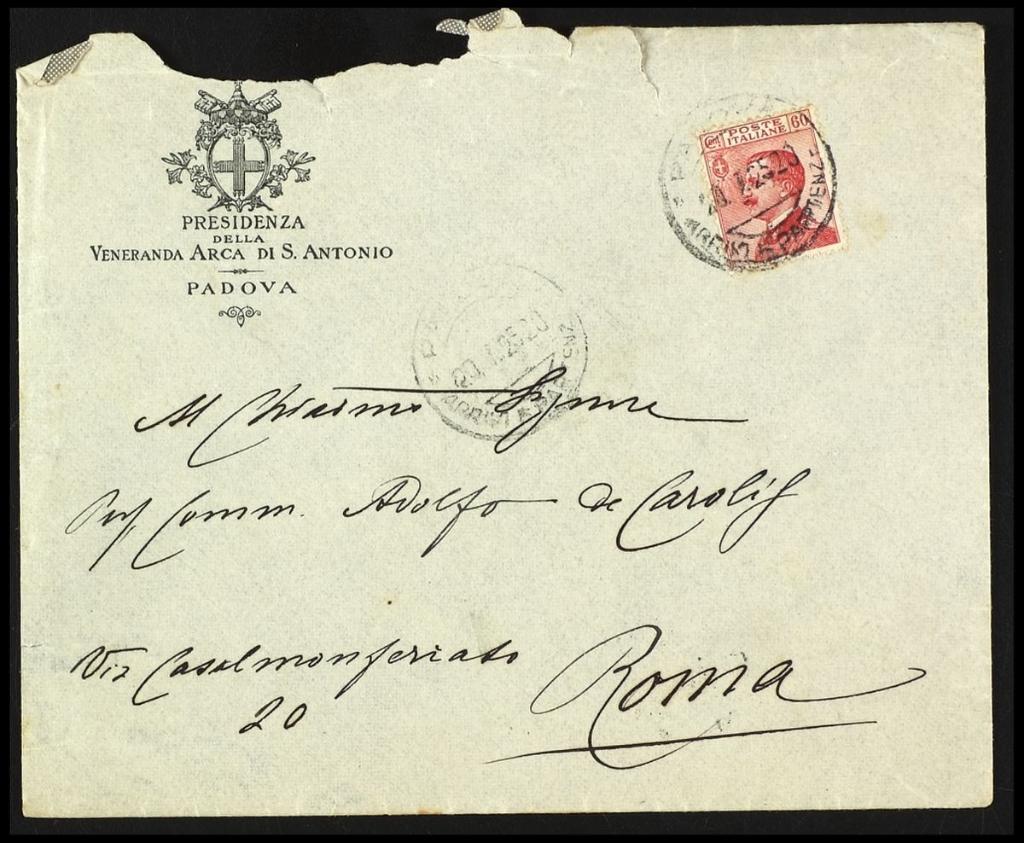 PRESIDENZA
DELLA
VENERANDA ARCA DI S. ANTONIO
PADOVA
POSTE
ITALIANE
60
20.1.25 20
ARRIVI E PARTENZE
20.1.25 20
ARRIVI E PARTENZE
Al Chiarmo Signore
Prof. Comm. Adolfo de Carolis
Via Casalmonferrato
20
Roma